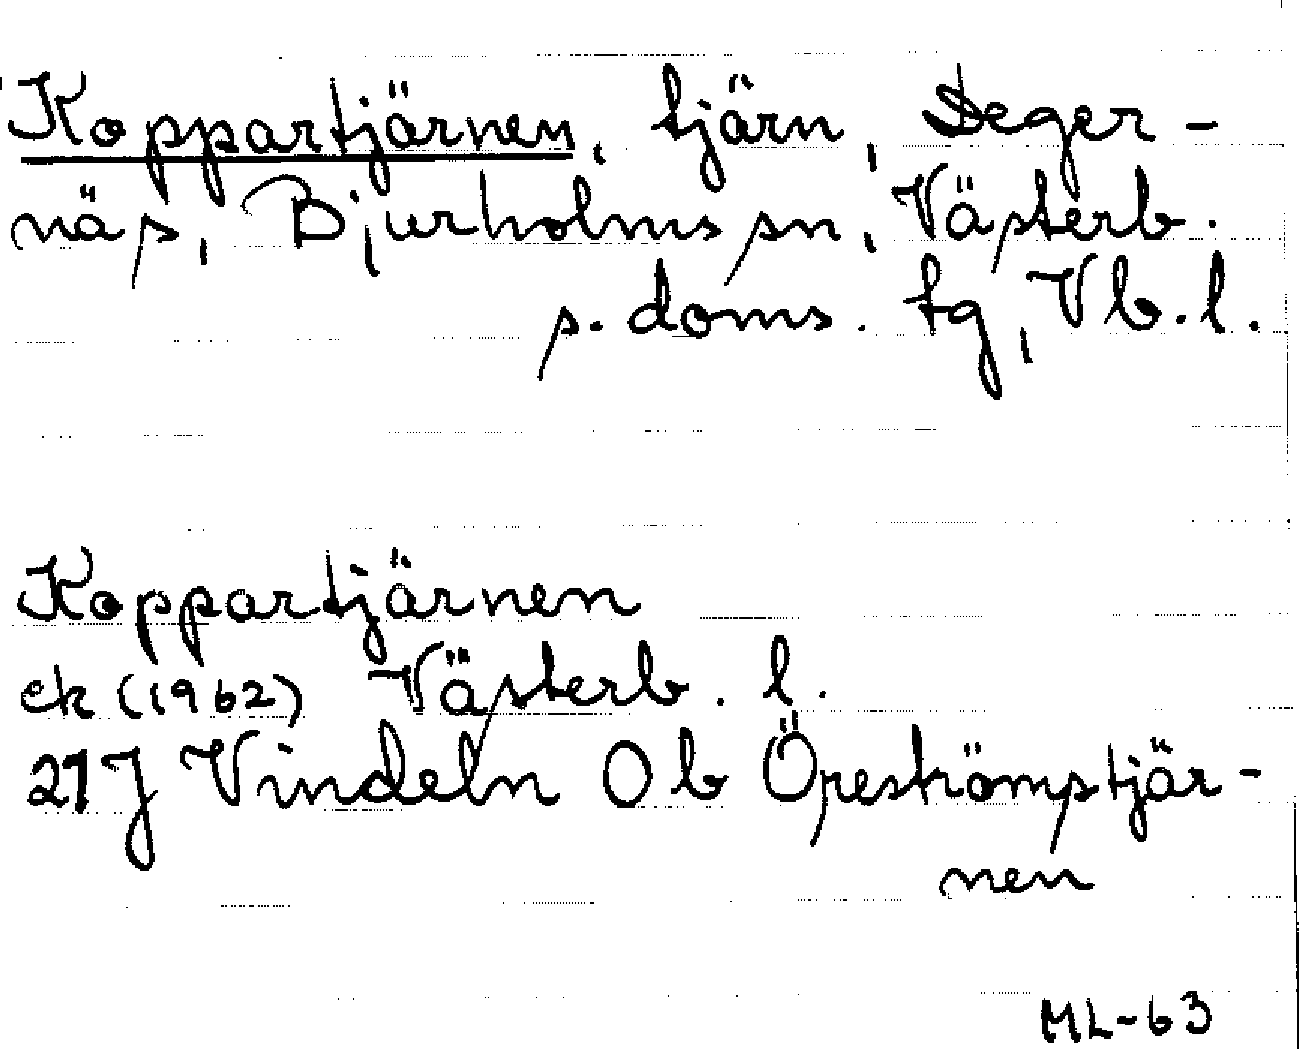 Koppartjärnen, tjärn, Deger-
näs, Bjurholms sn, Västerb.
s. doms. tg, Vb. l.
Koppartjärnen
ek (1962) Västerb. l.
21 J Vindeln Ob Öreströmstjär-
nen
ML-63